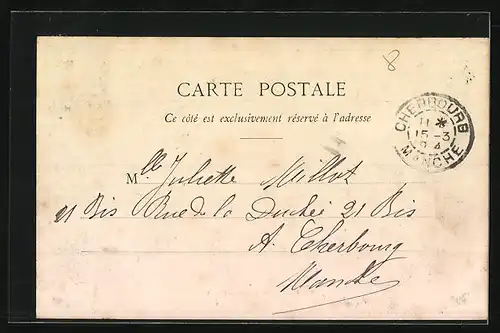 8
CARTE POSTALE
Ce côté est exclusivement réservé à l'adresse
CHERBOURG
11 *
15 -3
04
MANCHE
Mlle Juliette Millot
21 Bis Rue de la Duché 21 Bis
A Cherbourg
Manche